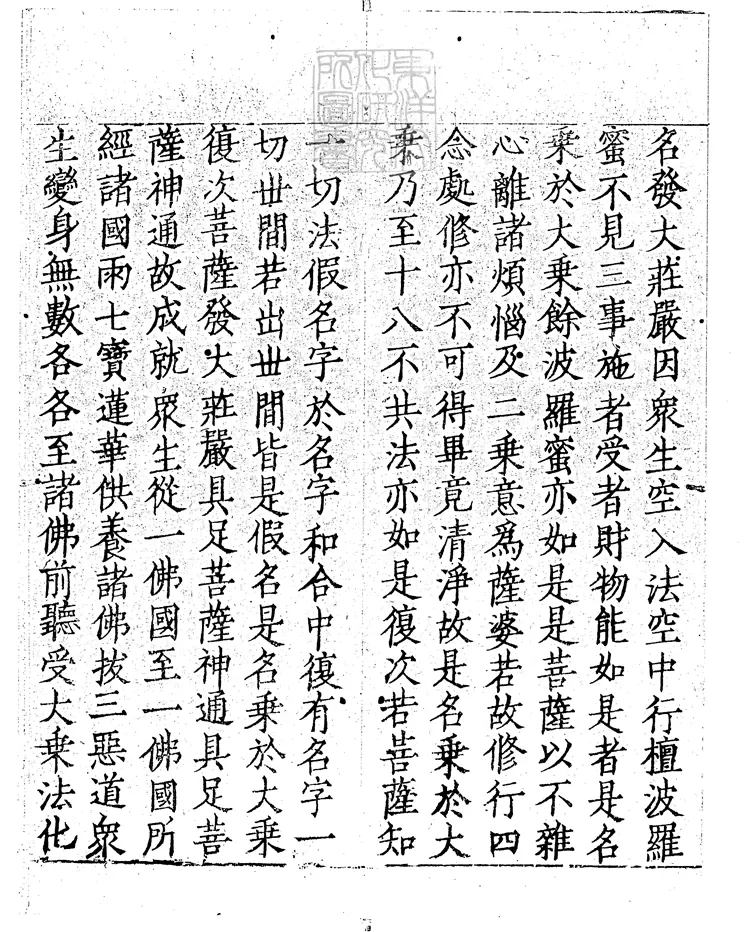 名發大莊嚴因衆生空入法空中行檀波羅
蜜不見三事施者受者財物能如是者是名
乗於大乗餘波羅蜜亦如是是菩薩以不雜
心離諸煩惱及二乗意爲薩婆若故修行四
念處修亦不可得畢竟清淨故是名乗於大
乗乃至十八不共法亦如是復次若菩薩知
一切法假名字於名字和合中復有名字一
切丗間若出丗間皆是假名是名乗於大乗
復次菩薩發大莊嚴具足菩薩神通具足菩
薩神通故成就衆生從一佛國至一佛國所
經諸國雨七寶蓮華供養諸佛拔三惡道衆
生變身無數各各至諸佛前聽受大乗法化